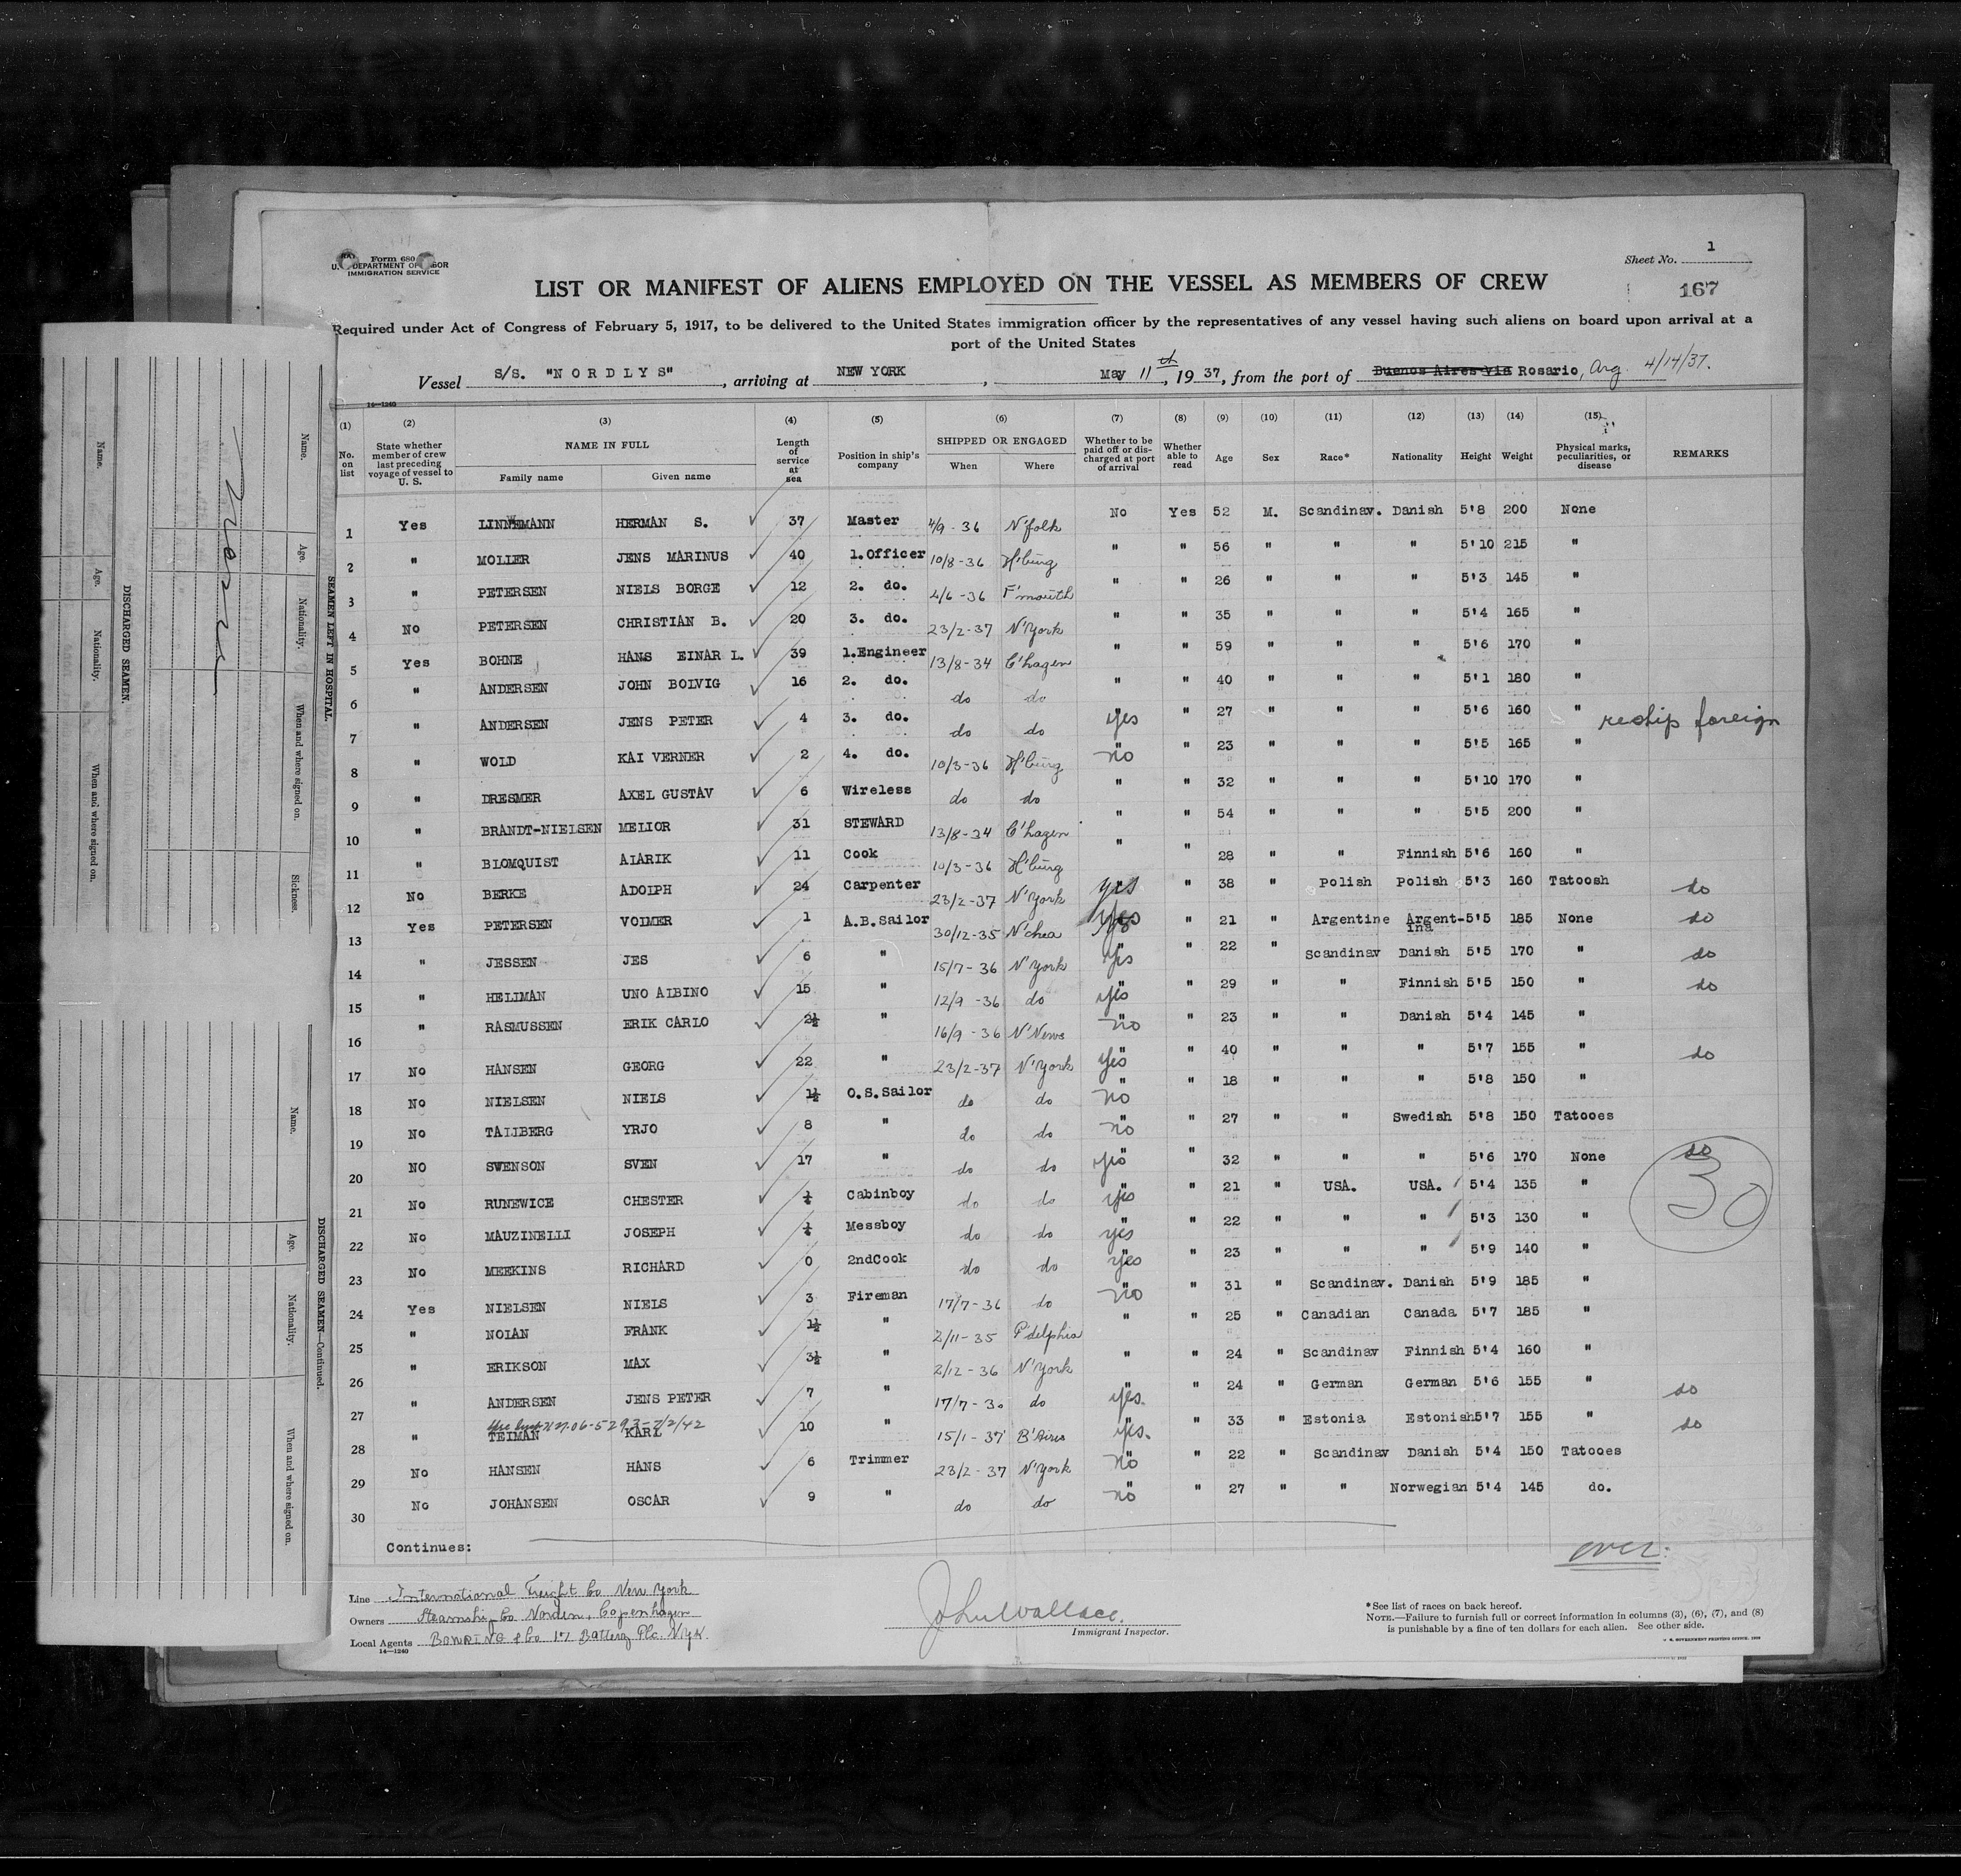 Form 680
U. S. DEPARTMENT OF LABOR
IMMIGRATION SERVICE
Sheet No. 1
167
LIST OR MANIFEST OF ALIENS EMPLOYED ON THE VESSEL AS MEMBERS OF CREW
Required under Act of Congress of February 5, 1917, to be delivered to the United States immigration officer by the representatives of any vessel having such aliens on board upon arrival at a
port of the United States
Vessel S/S. "NORDLYS", arriving at NEW YORK, May 11th, 1937, from the port of Buenos Aires via Rosario, Arg. 4/14/37.
14—1240
(1) (2) (3) (4) (5) (6) (7) (8) (9) (10) (11) (12) (13) (14) (15)
No. on list
State whether member of crew last preceding voyage of vessel to U. S.
NAME IN FULL
Family name
Given name
Length of service at sea
Position in ship's company
SHIPPED OR ENGAGED
When
Where
Whether to be paid off or discharged at port of arrival
Whether able to read
Age
Sex
Race*
Nationality
Height
Weight
Physical marks, peculiarities, or disease
REMARKS
1 Yes LINNEMANN HERMAN S. 37 Master 4/9-36 N'folk No Yes 52 M. Scandinav. Danish 5'8 200 None
2 " MOLLER JENS MARINUS 40 1.Officer 10/8-36 H'burg " " 56 " " " 5'10 215 "
3 " PETERSEN NIELS BORGE 12 2. do. 4/6-36 F'mouth " " 26 " " " 5'3 145 "
4 No PETERSEN CHRISTIAN B. 20 3. do. 23/2-37 N'York " " 35 " " " 5'4 165 "
5 Yes BOHNE HANS EINAR L. 39 1.Engineer 13/8-34 C'hagen " " 59 " " " 5'6 170 "
6 " ANDERSEN JOHN BOLVIG 16 2. do. do do " " 40 " " " 5'1 180 "
7 " ANDERSEN JENS PETER 4 3. do. do do yes " 27 " " " 5'6 160 " reship foreign
8 " WOLD KAI VERNER 2 4. do. 10/3-36 H'burg no " 23 " " " 5'5 165 "
9 " DRESMER AXEL GUSTAV 6 Wireless do do " " 32 " " " 5'10 170 "
10 " BRANDT-NIELSEN MELIOR 31 STEWARD 13/8-34 C'hagen " " 54 " " " 5'5 200 "
11 " BLOMQUIST ALARIK 11 Cook 10/3-36 H'burg " " 28 " " Finnish 5'6 160 "
12 No BERKE ADOLPH 24 Carpenter 23/2-37 N'York yes " 38 " Polish Polish 5'3 160 Tatoosh do
13 Yes PETERSEN VOLMER 1 A.B.Sailor 30/12-35 N'chea yes " 21 " Argentine Argent-ina 5'5 185 None do
14 " JESSEN JES 6 " 15/7-36 N'York yes " 22 " Scandinav Danish 5'5 170 " do
15 " HELLMAN UNO ALBINO 15 " 12/9-36 do yes " 29 " " Finnish 5'5 150 " do
16 " RASMUSSEN ERIK CARLO 2½ " 16/9-36 N'News no " 23 " " Danish 5'4 145 "
17 No HANSEN GEORG 22 " 23/2-37 N'York yes " 40 " " " 5'7 155 " do
18 No NIELSEN NIELS 1½ O.S.Sailor do do no " 18 " " " 5'8 150 "
19 No TALLBERG YRJO 8 " do do no " 27 " " Swedish 5'8 150 Tatooes
20 NO SWENSON SVEN 17 " do do yes " 32 " " " 5'6 170 None do
21 No RUNEWICE CHESTER Cabinboy do do yes " 21 " USA. USA. 5'4 135 "
30
22 No MAUZINELLI JOSEPH Messboy do do yes " 22 " " " 5'3 130 "
23 No MEEKINS RICHARD 0 2ndCook do do yes " 23 " " " 5'9 140 "
24 Yes NIELSEN NIELS 3 Fireman 17/7-36 do no " 31 " Scandinav. Danish 5'9 185 "
25 " NOLAN FRANK 1½ " 2/11-35 P'delphia " " 25 " Canadian Canada 5'7 185 "
26 " ERIKSON MAX 3½ " 2/12-36 N'York " " 24 " Scandinav Finnish 5'4 160 "
27 " ANDERSEN JENS PETER 7 " 17/7-30 do yes. " 24 " German German 5'6 155 " do
06-5293-2/2/42
28 " TEIMAN KARL 10 " 15/1-37 B'Aires yes. " 33 " Estonia Estonish 5'7 155 " do
29 No HANSEN HANS 6 Trimmer 23/2-37 N'York no " 22 " Scandinav Danish 5'4 150 Tatooes
30 No JOHANSEN OSCAR 9 " do do no " 27 " " Norwegian 5'4 145 do.
Continues:
over.
Line International Freight Co New York
Owners Steamship Co Norden, Copenhagen
Local Agents BOWRING & Co 17 Battery Plc. N.Y.K.
14—1240
John Wallace.
Immigrant Inspector.
*See list of races on back hereof.
NOTE.—Failure to furnish full or correct information in columns (3), (6), (7), and (8)
is punishable by a fine of ten dollars for each alien. See other side.
U. S. GOVERNMENT PRINTING OFFICE
SEAMEN LEFT IN HOSPITAL.
Name. Age. Nationality. When and where signed on. Sickness.
None
DISCHARGED SEAMEN.
Name. Age. Nationality. When and where signed on.
DISCHARGED SEAMEN—Continued.
Name. Age. Nationality. When and where signed on.